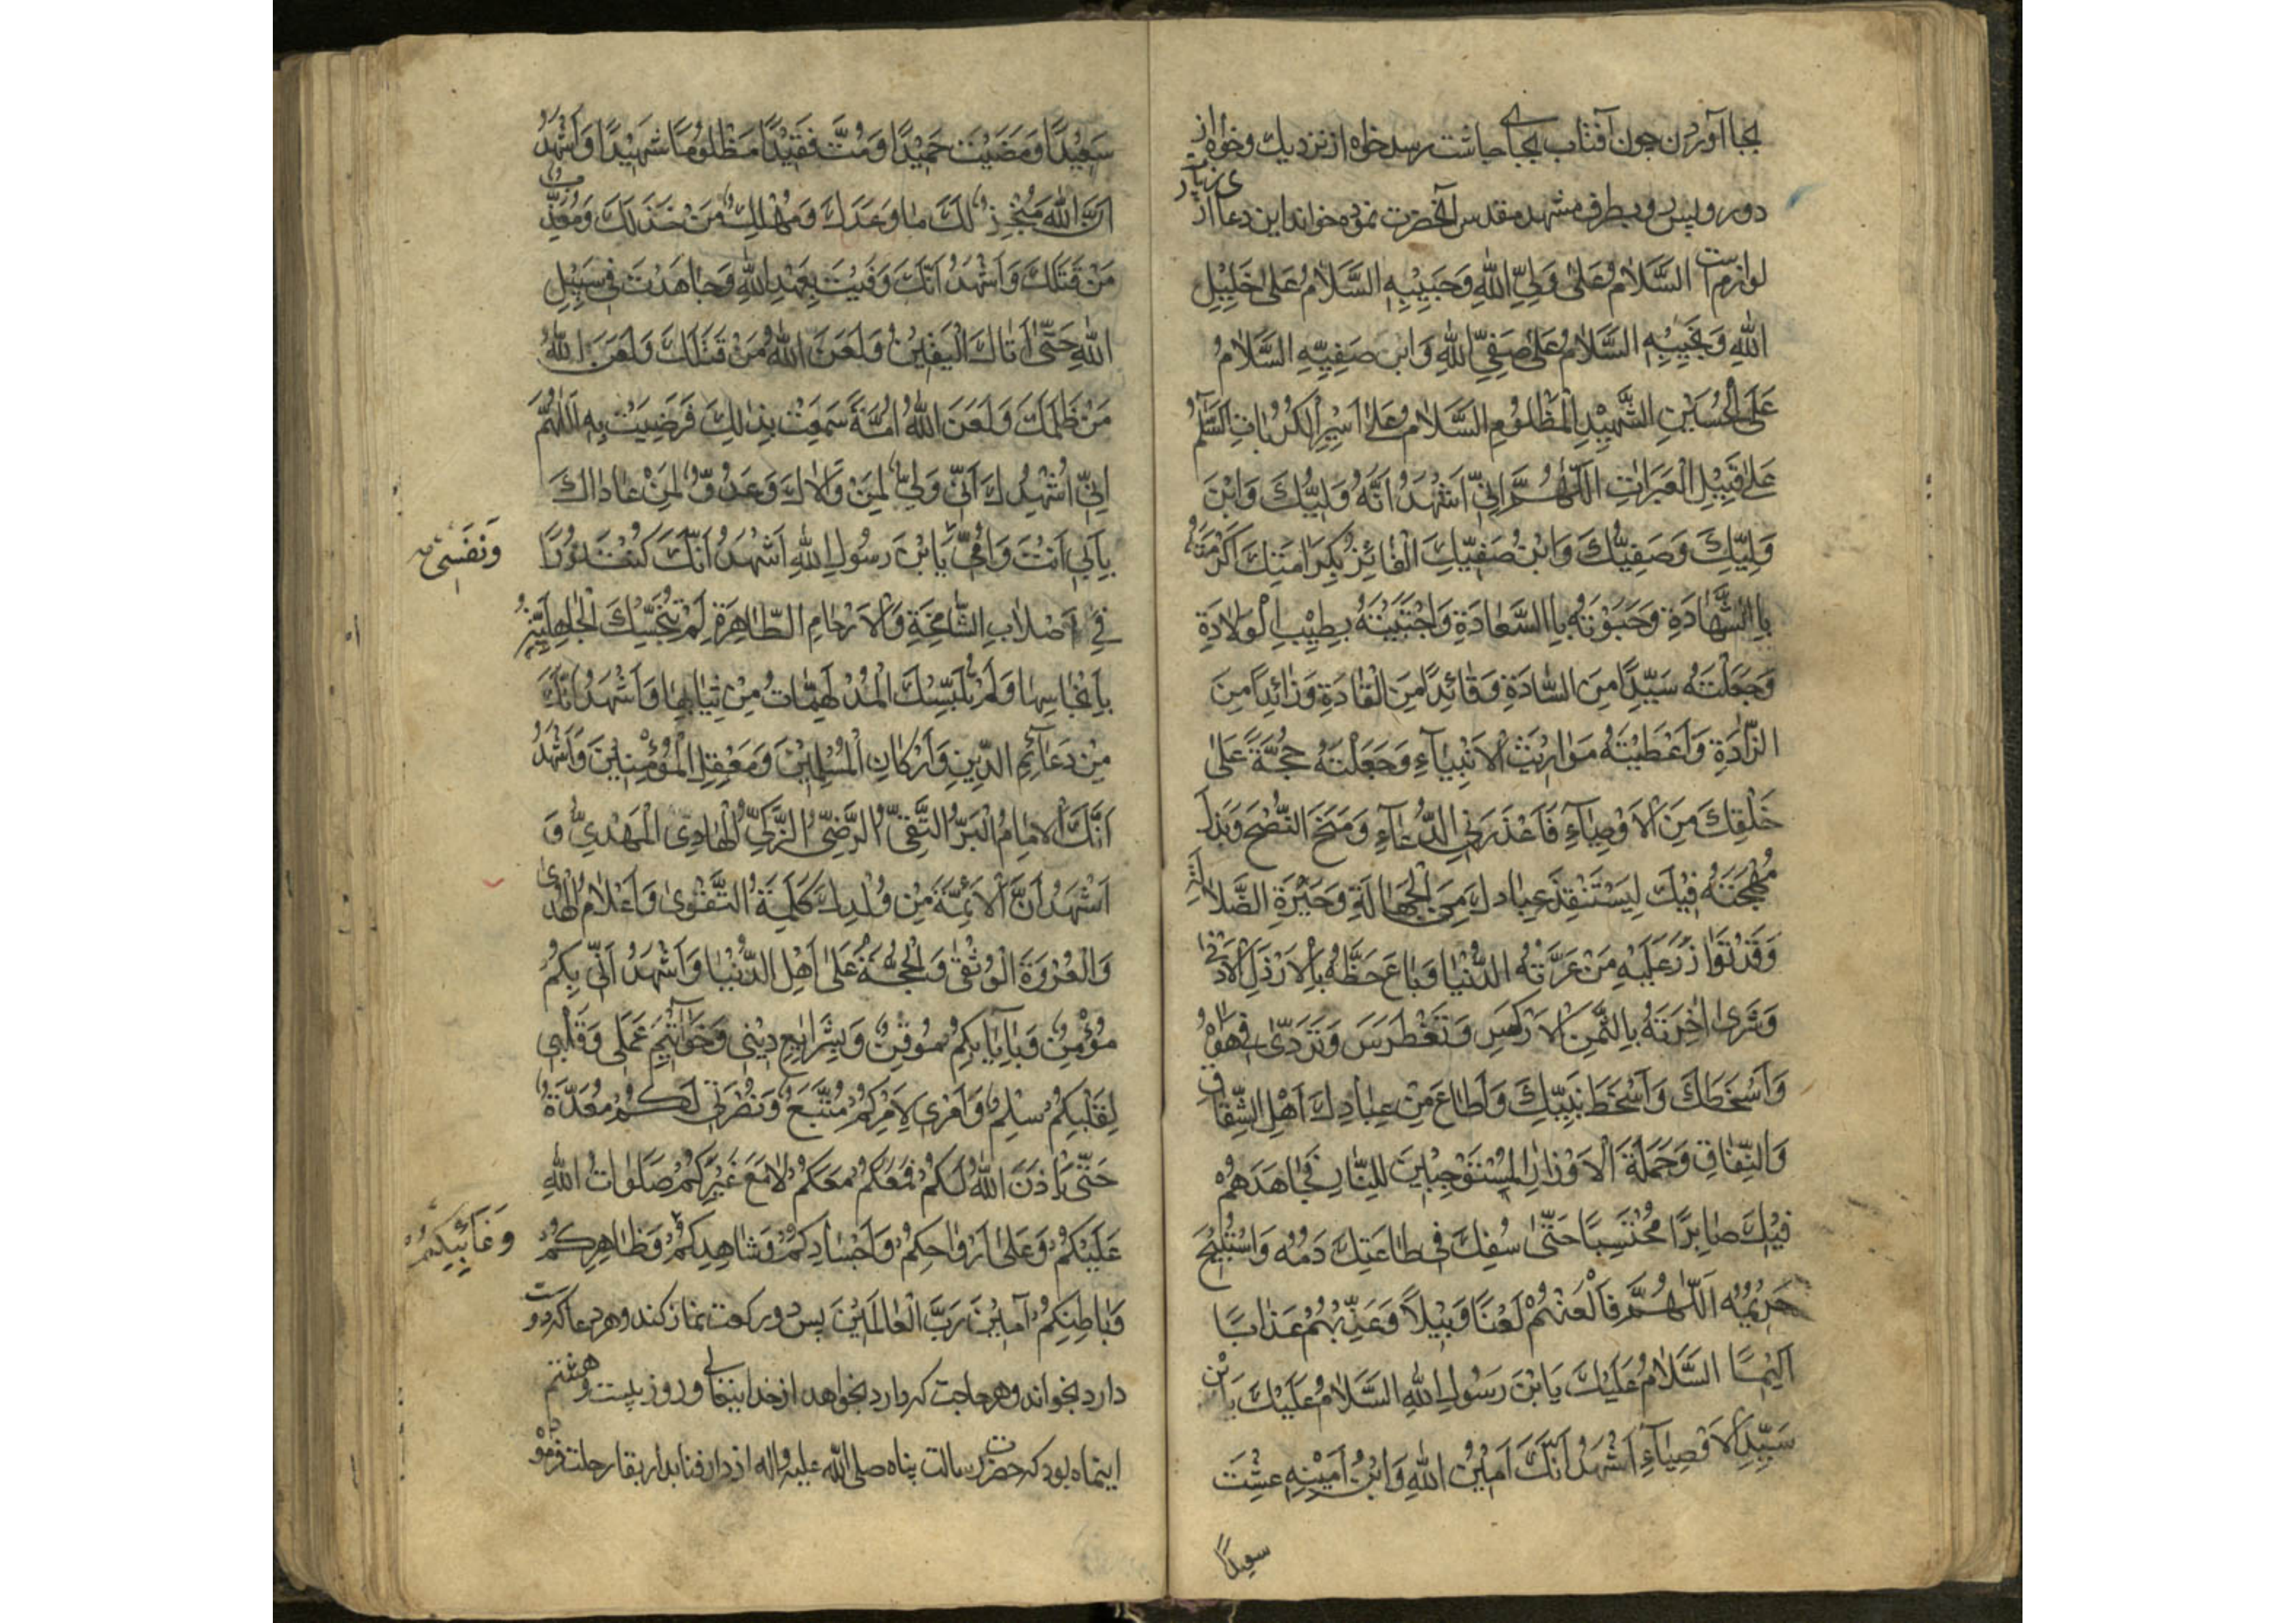 بجا آوردن چون آفتاب بجای چاشت رسد خواه از نزدیک و خواه از
دور رو پس و بطرف مشهد مقدس آنحضرت نموده خواند این دعا از
ی زیار
لوازم است السَّلَامُ عَلَىٰ وَلِيِّ اللّٰهِ وَحَبِيبِهِ السَّلَامُ عَلَىٰ خَلِيْلِ
اللّٰهِ وَنَجِيبِهِ السَّلَامُ عَلَىٰ صَفِيِّ اللّٰهِ وَابْنِ صَفِيِّهِ السَّلَامُ
عَلَى الْحُسَيْنِ الشَّهِيْدِ الْمَظْلُومِ السَّلَامُ عَلَىٰ اَسِيْرِ الْكُرُبَاتِ السَّلَامُ
عَلَىٰ قَتِيْلِ الْعَبَرَاتِ اَللّٰهُمَّ اِنِّيْ اَشْهَدُ اَنَّهُ وَلِيُّكَ وَابْنُ
وَلِيِّكَ وَصَفِيُّكَ وَابْنُ صَفِيِّكَ الْفَائِزُ بِكَرَامَتِكَ اَكْرَمْتَهُ
بِاالشَّهَادَةِ وَحَبَوْتَهُ بِاالسَّعَادَةِ وَاجْتَبَيْتَهُ بِطِيْبِ الْوِلَادَةِ
وَجَعَلْتَهُ سَيِّدًا مِنَ السَّادَةِ وَقَائِدًا مِنَ الْقَادَةِ وَزَائِدًا مِنَ
الزَّادَةِ وَاَعْطَيْتَهُ مَوَارِيْثَ الْاَنْبِيَآءِ وَجَعَلْتَهُ حُجَّةً عَلَىٰ
خَلْقِكَ مِنَ الْاَوْصِيَآءِ فَاَعْذَرَ فِي الدُّعَآءِ وَمَنَحَ النُّصْحَ وَبَذَلَ
مُهْجَتَهُ فِيْكَ لِيَسْتَنْقِذَ عِبَادَكَ مِنَ الْجَهَالَةِ وَحَيْرَةِ الضَّلَالَةِ
وَقَدْ تَوَازَرَ عَلَيْهِ مَنْ غَرَّتْهُ الدُّنْيَا وَبَاعَ حَظَّهُ بِالْاَرْذَلِ الْاَدْنٰى
وَشَرٰى اٰخِرَتَهُ بِالثَّمَنِ الْاَوْكَسِ وَتَغَطْرَسَ وَتَرَدّٰى فِي هَوَاهُ
وَاَسْخَطَكَ وَاَسْخَطَ نَبِيَّكَ وَاَطَاعَ مِنْ عِبَادِكَ اَهْلَ الشِّقَاقِ
وَالنِّفَاقِ وَحَمَلَةَ الْاَوْزَارِ الْمُسْتَوْجِبِيْنَ لِلنَّارِ فَجَاهَدَهُمْ
فِيْكَ صَابِرًا مُحْتَسِبًا حَتّٰى سُفِكَ فِي طَاعَتِكَ دَمُهُ وَاسْتُبِيْحَ
حَرِيْمُهُ اَللّٰهُمَّ فَالْعَنْهُمْ لَعْنًا وَبِيْلًا وَعَذِّبْهُمْ عَذَابًا
اَلِيْمًا السَّلَامُ عَلَيْكَ يَابْنَ رَسُوْلِ اللّٰهِ السَّلَامُ عَلَيْكَ يَابْنَ
سَيِّدِ الْاَوْصِيَآءِ اَشْهَدُ اَنَّكَ اَمِيْنُ اللّٰهِ وَابْنُ اَمِيْنِهِ عِشْتَ
سعیدًا
سَعِيْدًا وَمَضَيْتَ حَمِيْدًا وَمُتَّ فَقِيْدًا مَظْلُوْمًا شَهِيْدًا وَاَشْهَدُ
اَنَّ اللّٰهَ مُنْجِزٌ لَكَ مَا وَعَدَكَ وَمُهْلِكٌ مَنْ خَذَلَكَ وَمُعَذِّبٌ
مَنْ قَتَلَكَ وَاَشْهَدُ اَنَّكَ وَفَيْتَ بِعَهْدِ اللّٰهِ وَجَاهَدْتَ فِي سَبِيْلِ
اللّٰهِ حَتّٰى اَتَاكَ الْيَقِيْنُ وَلَعَنَ اللّٰهُ مَنْ قَتَلَكَ وَلَعَنَ اللّٰهُ
مَنْ ظَلَمَكَ وَلَعَنَ اللّٰهُ اُمَّةً سَمِعَتْ بِذٰلِكَ فَرَضِيَتْ بِهِ اَللّٰهُمَّ
اِنِّيْ اُشْهِدُكَ اَنِّيْ وَلِيٌّ لِمَنْ وَالَاكَ وَعَدُوٌّ لِمَنْ عَادَاكَ
بِاَبِي اَنْتَ وَاُمِّيْ يَابْنَ رَسُوْلِ اللّٰهِ اَشْهَدُ اَنَّكَ كُنْتَ نُوْرًا
وَنَفْسِيْ
فِي اَصْلَابِ الشَّامِخَةِ وَالْاَرْحَامِ الطَّاهِرَةِ لَمْ تُنَجِّسْكَ الْجَاهِلِيَّةُ
بِاَنْجَاسِهَا وَلَمْ تُلْبِسْكَ الْمُدْلَهِمَّاتُ مِنْ ثِيَابِهَا وَاَشْهَدُ اَنَّكَ
مِنْ دَعَآئِمِ الدِّيْنِ وَاَرْكَانِ الْمُسْلِمِيْنَ وَمَعْقِلِ الْمُؤْمِنِيْنَ وَاَشْهَدُ
اَنَّكَ الْاِمَامُ الْبَرُّ التَّقِيُّ الرَّضِيُّ الزَّكِيُّ الْهَادِيُ الْمَهْدِيُّ وَ
اَشْهَدُ اَنَّ الْاَئِمَّةَ مِنْ وُلْدِكَ كَلِمَةُ التَّقْوٰى وَاَعْلَامُ الْهُدٰى
وَالْعُرْوَةُ الْوُثْقٰى وَالْحُجَّةُ عَلٰى اَهْلِ الدُّنْيَا وَاَشْهَدُ اَنِّيْ بِكُمْ
مُؤْمِنٌ وَبِاِيَابِكُمْ مُوْقِنٌ وَبِشَرَايِعِ دِيْنِي وَخَوَاتِيْمِ عَمَلِي وَقَلْبِي
لِقَلْبِكُمْ سِلْمٌ وَاَمْرِي لِاَمْرِكُمْ مُتَّبِعٌ وَنُصْرَتِي لَكُمْ مُعَدَّةٌ
حَتّٰى يَاْذَنَ اللّٰهُ لَكُمْ فَمَعَكُمْ مَعَكُمْ لَا مَعَ غَيْرِكُمْ صَلَوَاتُ اللّٰهِ
عَلَيْكُمْ وَعَلٰى اَرْوَاحِكُمْ وَاَجْسَادِكُمْ وَشَاهِدِكُمْ وَظَاهِرِكُمْ
وَغَآئِبِكُمْ
وَبَاطِنِكُمْ آمِيْنَ رَبَّ الْعَالَمِيْنَ پس دو رکعت نماز کند و هر دعا که دوست
دارد بخواند و هر حاجت که دارد بخواهد از خدایتعالی و روز بیست و هشتم
اینماه بود که حضرت رسالت پناه صلی الله علیه واله از دار فنا بدار بقا رحلت فرمود